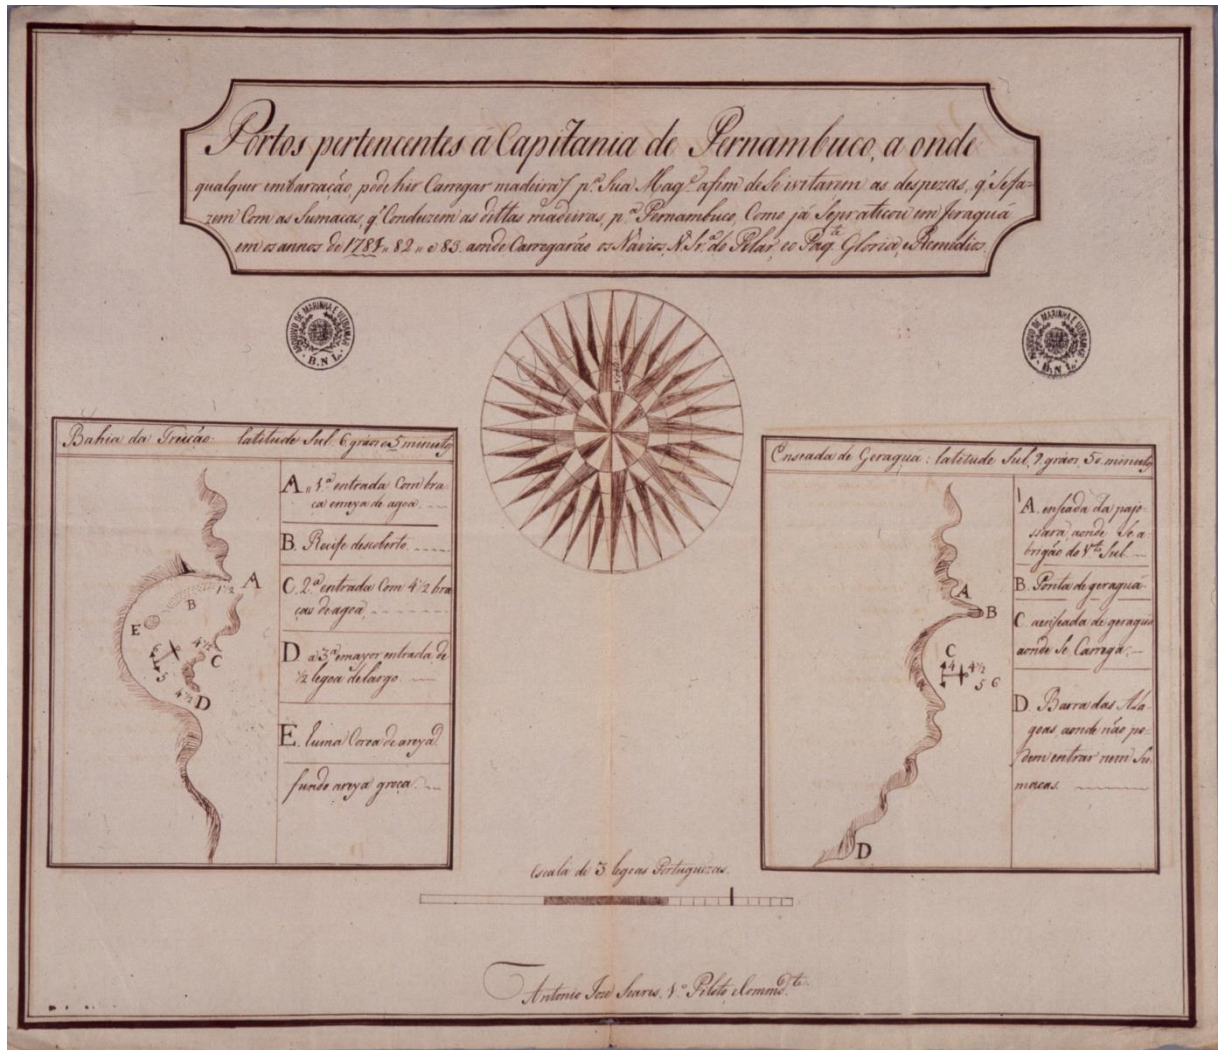 Portos pertencentes á Capitania de Pernambuco, a onde
qualquer embarcação, pode hir Carregar madeiras p.ª Sua Mag.e afim de Se ivitarem as despezas, q' Se fa-
zem Com as Sumacas, q' Conduzem as dittas madeiras, p.ª Pernambuco, Como já Se praticou em Jeraguá
em os annos de 1781, 82, e 83. aonde Carregarão os Navios, N. Sr.ª do Pilar, e o Paq.te Gloria, e Remedios.
ARQUIVO DE MARINHA E ULTRAMAR
B.N.L.
ARQUIVO DE MARINHA E ULTRAMAR
B.N.L.
Bahia da Treição: latitude Sul. 6 gráos e 5 minutos
A. 1.ª entrada Com bra-
ça emeya de agoa.
B. Recife descoberto.
C. 2.ª entrada Com 4 1/2 bra
ças de agoa,
D a 3.ª emayor entrada, de
1/2 legoa de largo.
E. huma Coroa de areya
fundo areya groça.
A
1 1/2
B
E
4 1/2
C
6
5
4 1/2
D
Enseada de Geraguá: latitude Sul, 9 gráos, 50 minutos
A. enseada da pajo-
ssara, aonde Se a-
brigão do V.to Sul.
B. Ponta de geraguá
C. aenseada de geragua
aonde Se Carrega,
D. Barra das Ala-
goas aonde não po-
dem entrar nem Su-
macas.
A
B
C
4 4 1/2
5 6
D
Escala de 3 legoas Portuguezas.
Antonio Joze Soares, 1.º Piloto, eComm.dte